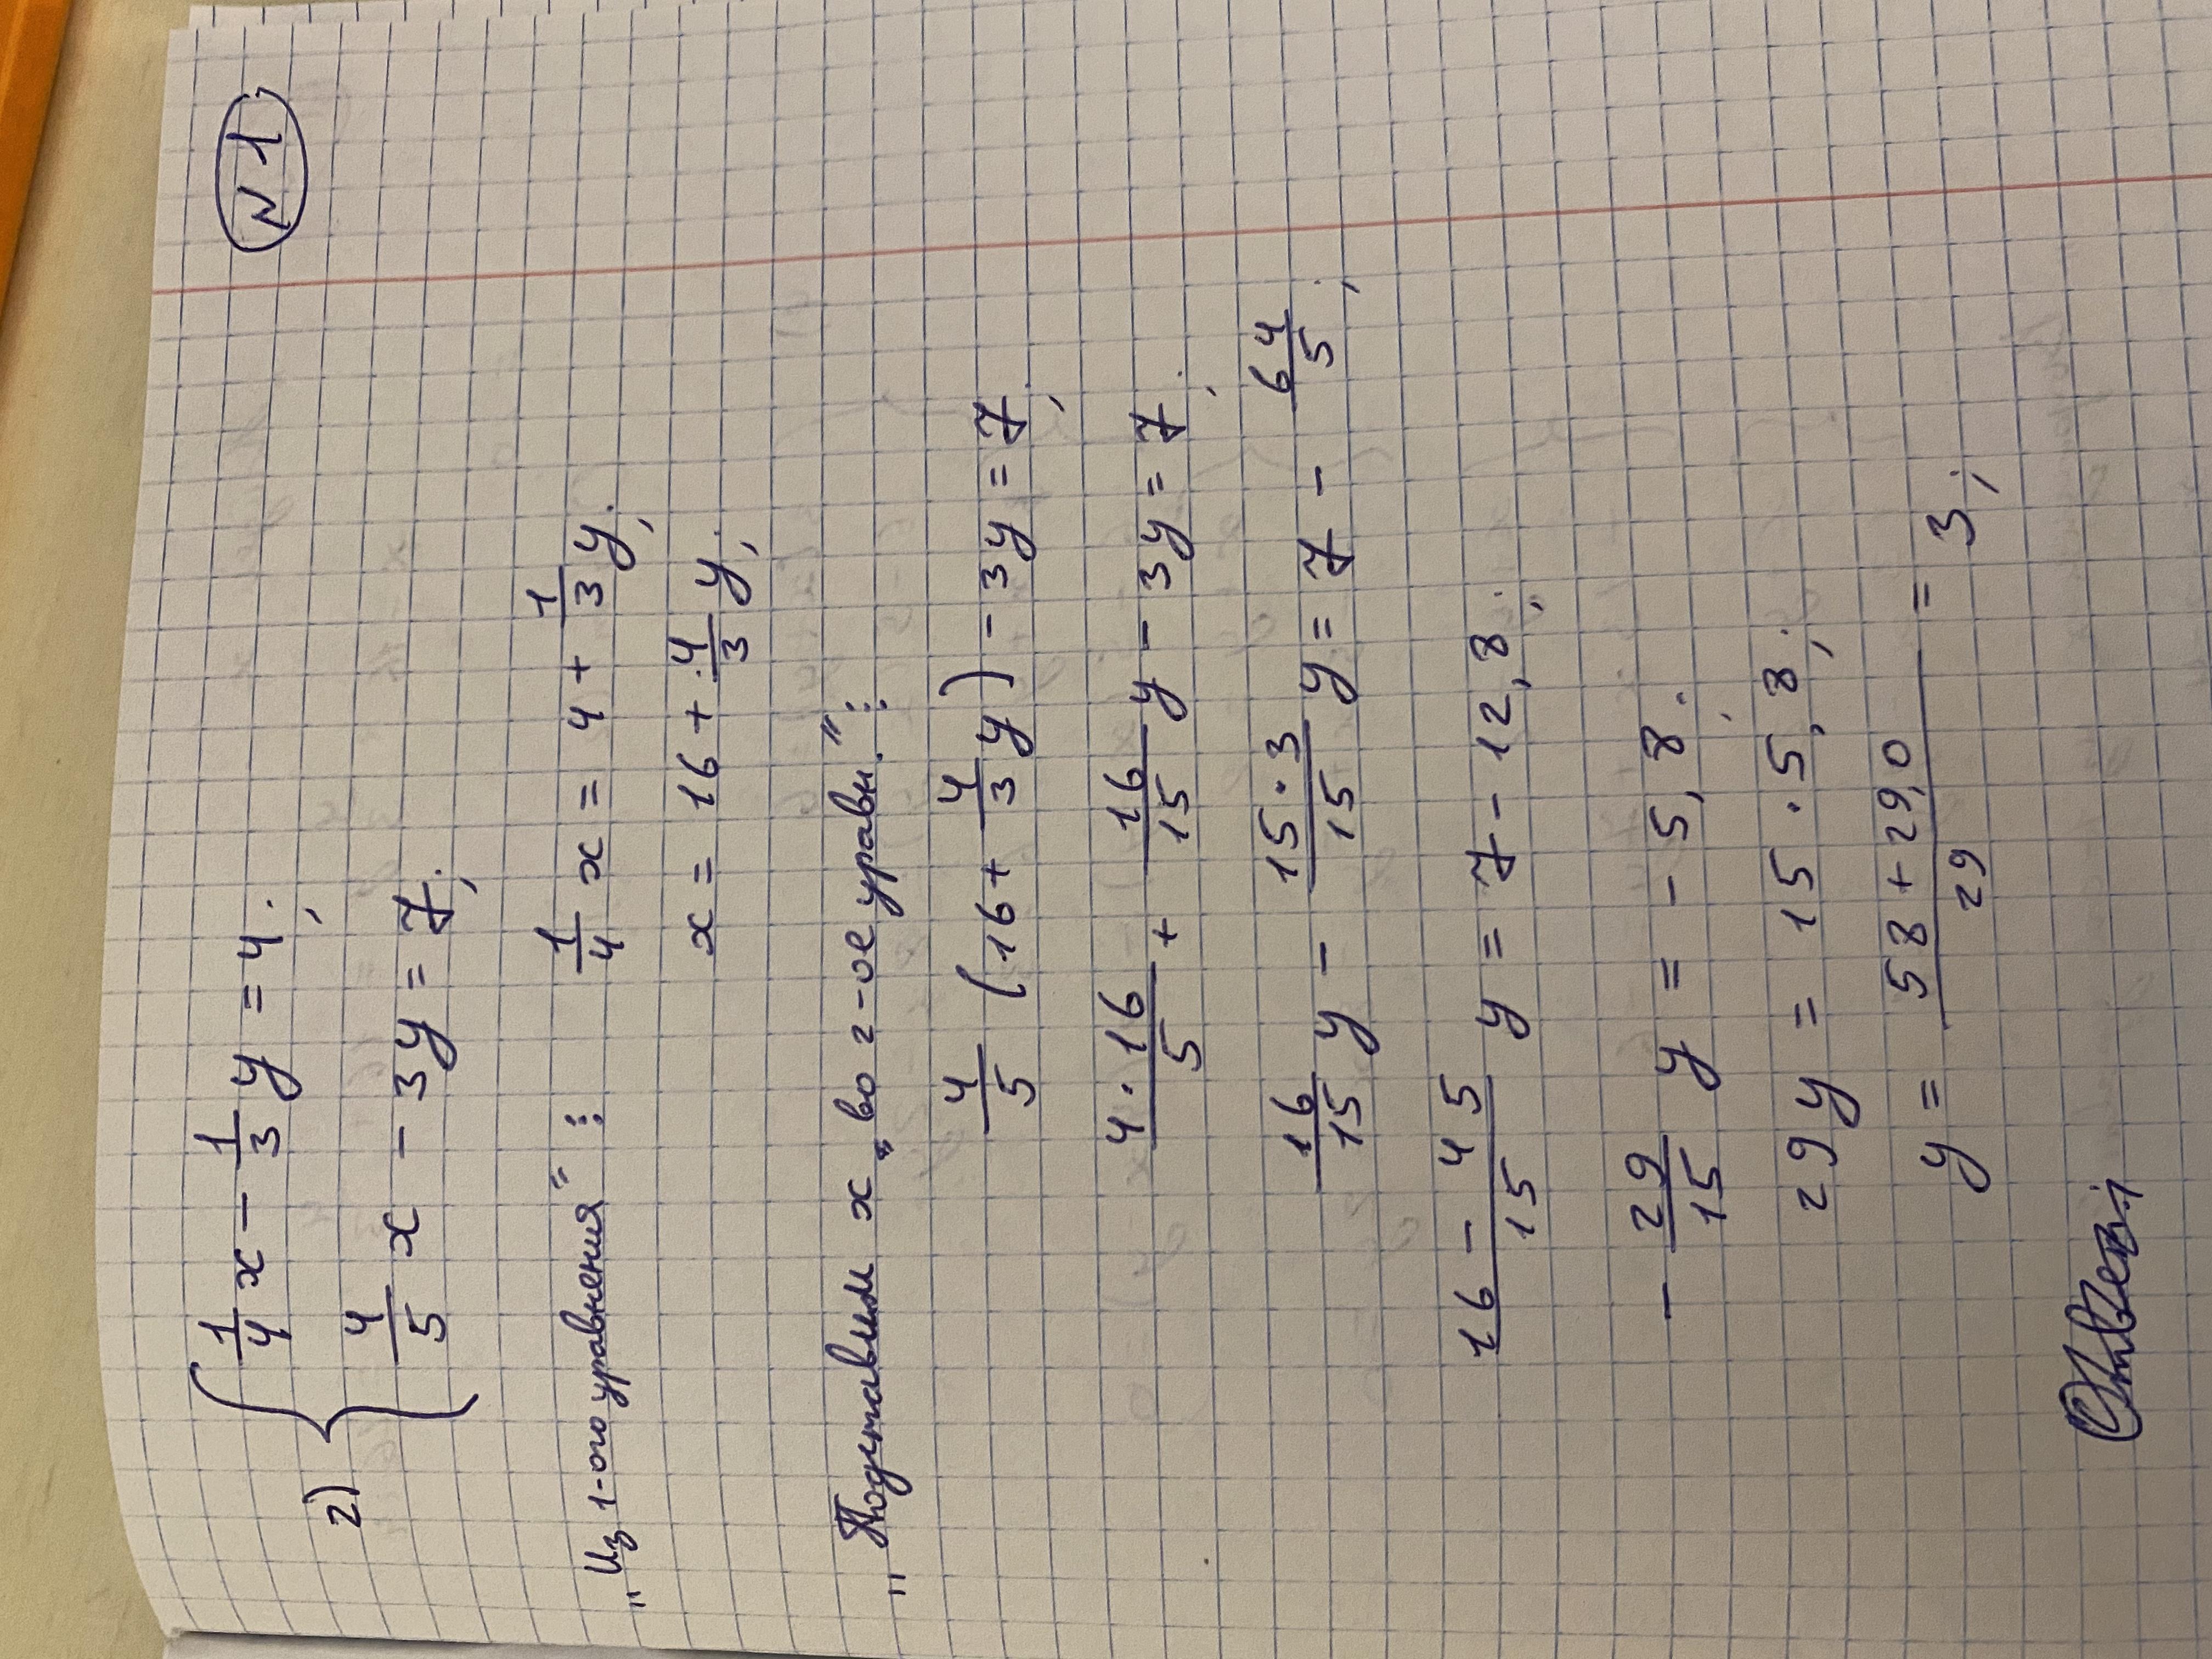 N 1
2) { 1/4 x - 1/3 y = 4;
4/5 x - 3y = 7;
„Из 1-ого уравнения": 1/4 x = 4 + 1/3 y;
x = 16 + 4/3 y;
„Подставим x „во 2-ое уравн.":
4/5 (16 + 4/3 y) - 3y = 7;
4·16/5 + 16/15 y - 3y = 7;
16/15 y - 15·3/15 y = 7 - 64/5;
16 - 45/15 y = 7 - 12,8;
- 29/15 y = - 5,8;
29y = 15 · 5,8;
y = 58 + 29,0/29 = 3;
Ответ: